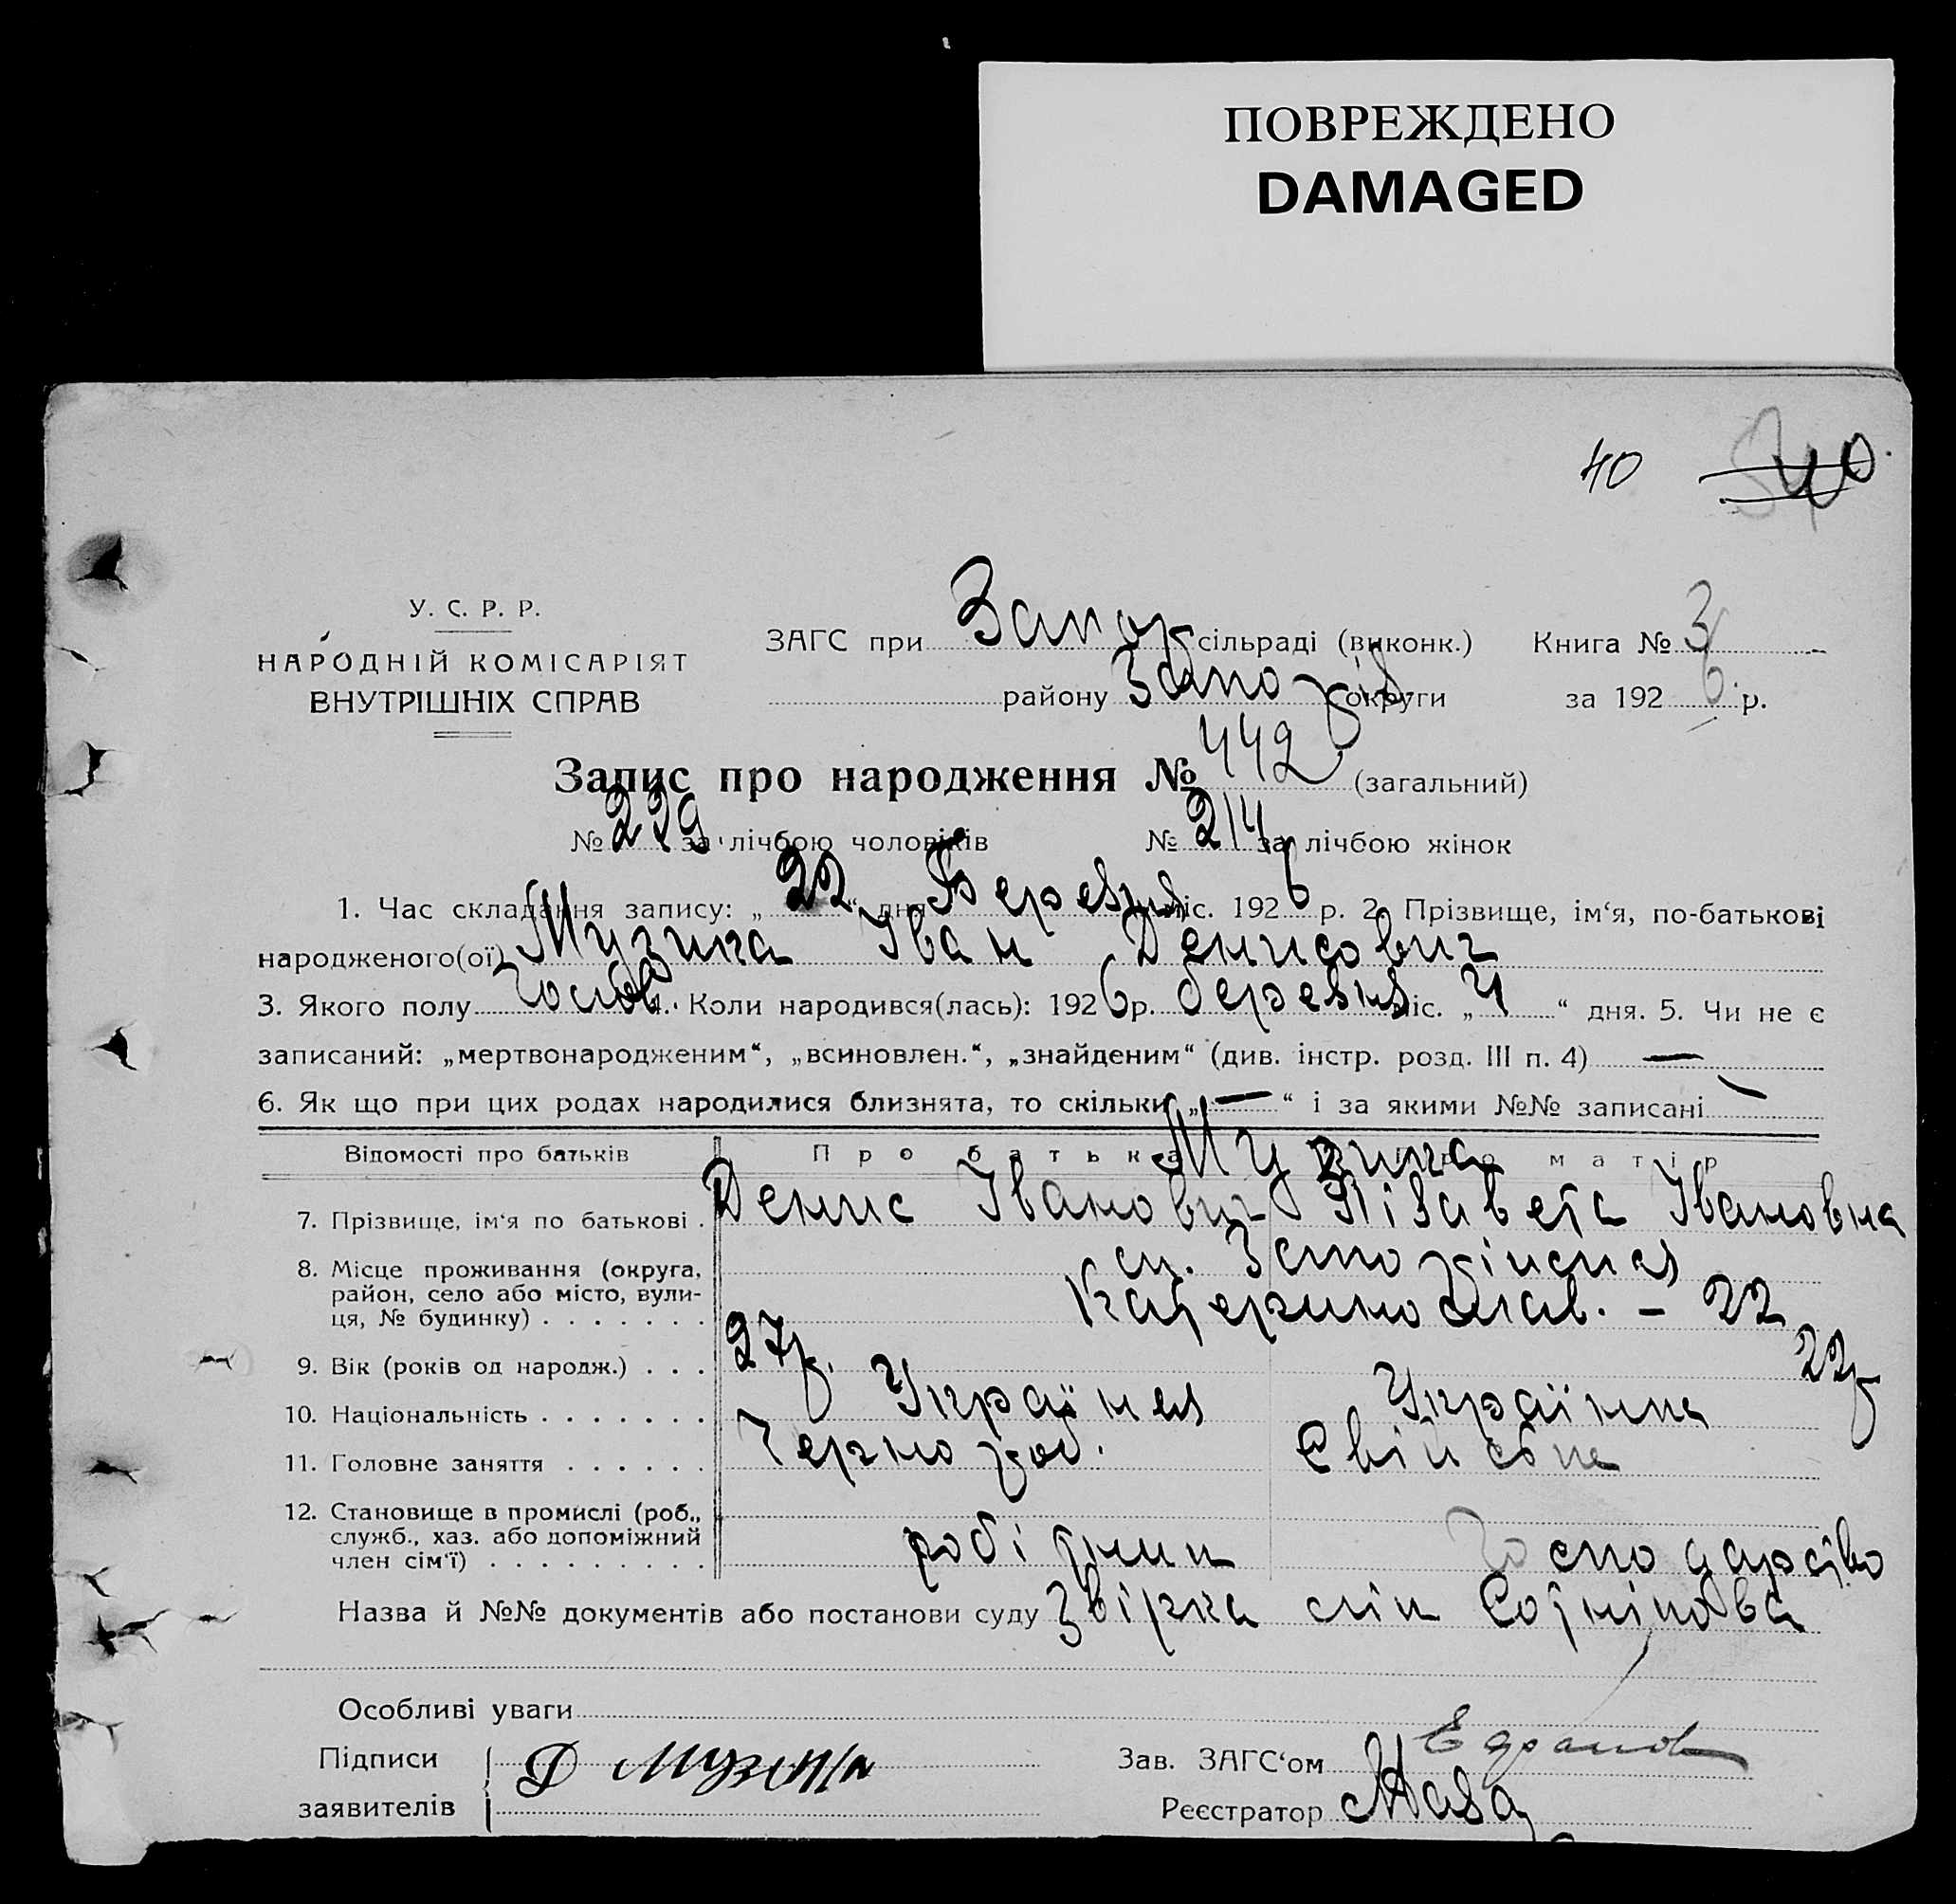 ПОВРЕЖДЕНО
DAMAGED
40 40
У. С. Р. Р.
НАРОДНІЙ КОМІСАРІЯТ
ВНУТРІШНІХ СПРАВ
ЗАГС при Запор сільраді (виконк.) Книга № 3
району Запоріз округи за 192 6 р.
Запис про народження № 442 (загальний)
№ 229 за лічбою чоловіків № 214 за лічбою жінок
1. Час складання запису: „ 22 “ дня Березня міс. 192 6 р. 2. Прізвище, ім‘я, по-батькові
народженого(ої) Музика Іван Денисович
3. Якого полу Чолов 4. Коли народився(лась): 192 6 р. березня міс. „ 4 “ дня. 5. Чи не є
записаний: „мертвонародженим“, „всиновлен.“, „знайденим“ (див. інстр. розд. III п. 4) —
6. Як що при цих родах народилися близнята, то скільки „ — “ і за якими №№ записані —
Відомості про батьків Про батька Про матір
Музика
7. Прізвище, ім‘я по батькові . Денис Іванович Лізавета Івановна
8. Місце проживання (округа, район, село або місто, вулиця, № будинку) . . . . . . . Запоріжжя
Катеринослав. – 22
9. Вік (років од народж.) . . . 27р. 22р
10. Національність . . . . . . . Українец Українка
11. Головне заняття . . . . . . Чернороб. Свійсбна
12. Становище в промислі (роб., служб., хаз. або допоміжний член сім‘ї) . . . . . . . . . робітник Господарство
Назва й №№ документів або постанови суду Звірка Сотнікова
Особливі уваги
Підписи Д Музика Зав. ЗАГС‘ом
заявителів Реєстратор